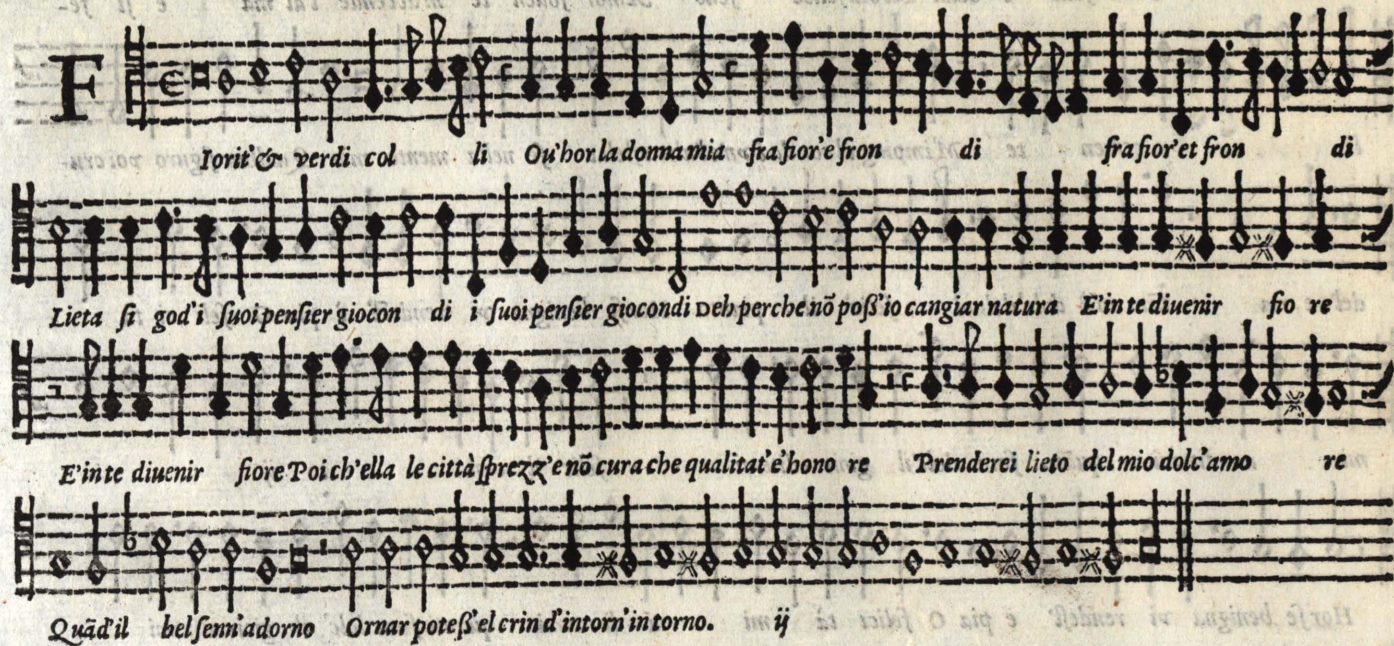 F
Iorit' & verdi col li Ou'hor la donna mia fra fior'e fron di fra fior'et fron di
Lieta si god'i suoi pensier giocon di i suoi pensier giocondi Deh perche nõ poss'io cangiar natura E'in te diuenir fio re
E'in te diuenir fiore Poi ch'ella le città sprezz'e nõ cura che qualitat'è hono re Prenderei lieto del mio dolc'amo re
Quãd'il bel senn'adorno Ornar potess'el crin d'intorn'in torno. ij